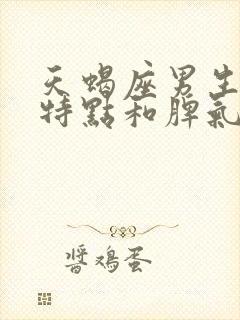 天蝎座男生
特點和脾氣
醬鴻蛋